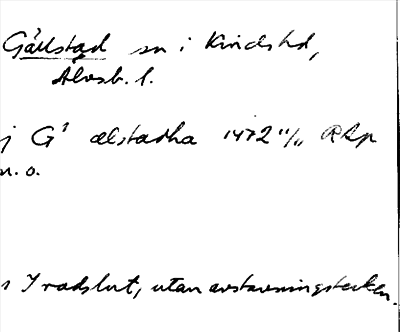 Gällstad sn i Kinds hd,
Älvsb. l.
j G¹ ælstadha 1472 11/11 RAp
n. o.
1 I radslut, utan avstavningstecken.